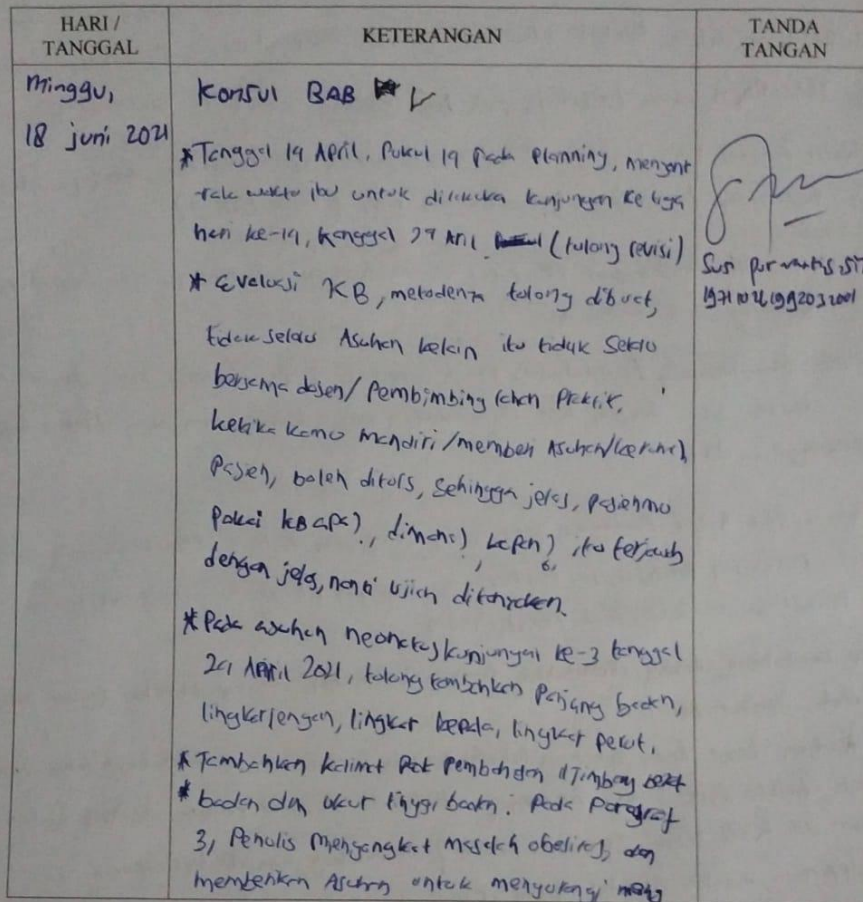 HARI /
TANGGAL
KETERANGAN
TANDA
TANGAN
Minggu,
18 juni 2021
Konsul BAB V
* Tanggal 19 April, Pukul 19 pada planning, mengont
rak waktu ibu untuk dilakuka kunjungan ke tiga
hari ke-19, tanggal 29 Aril (tolong revisi)
* Evaluasi KB, metodenya tolong dibuat,
tidak selalu Asuhan itu tidak Selalu
bersama dosen/ Pembimbing lahan Praktik,
ketika kamu mandiri/memberi Asuhan/
Pasien, boleh ditulis, Sehingga jelas, pasienmu
Pakai KB apa?, dimana?, kapan?, itu terjawab
dengan jelas, nanti ujian ditanyakan.
* Pada asuhan neonatus kunjungan ke-3 tanggal
29 April 2021, tolong tambahkan Panjang badan,
lingkar lengan, lingkar kepala, lingkar perut.
* Tambahkan kalimat Pembahasan Timbang berat
* badan dan ukur tinggi badan. Pada Paragraf
3, Penulis mengangkat masalah obesitas, dan
memberikan Asuhan untuk mengurangi